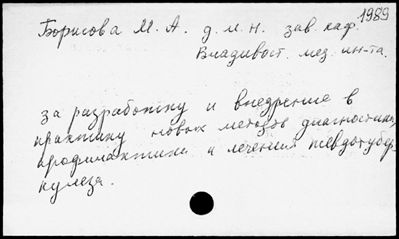 1989
Борисова М. А. д.м.н. зав. каф.
Владивост. мед. ин-та.
за разработку и внедрение в
практику новых методов диагностики,
профилактики и лечения псевдотубер-
кулеза.